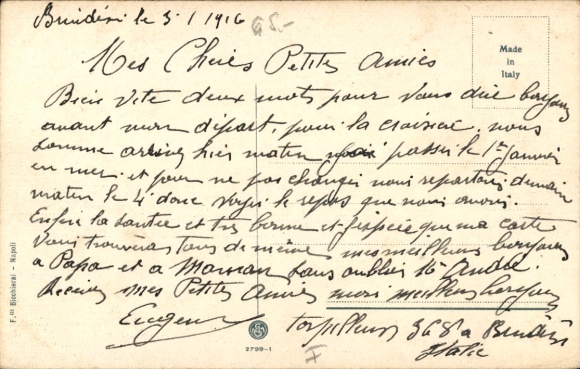 Brindisi le 3/1 1916
65-
Mes Chères Petites Amies
Made
in
Italy
Bien Vite deux mots pour vous dire bonjour
avant mon départ, pour la croisière, nous
somme arrivez hier matin passer le 1er Janvier
en mer et pour ne pas changer nous repartons demain
matin le 4 donc voyez le repos que nous avons.
Enfin la santée et très bonne et j'espère que ma carte
vous trouvera tous de même mes meilleurs bonjours
a Papa et a Maman sans oublier André.
Recevez mes Petites Amies mon meilleur bonjour
Eugene
torpilleur 368 a Brindisi
Italie
F.lli Bicchierai - Napoli
2799-1